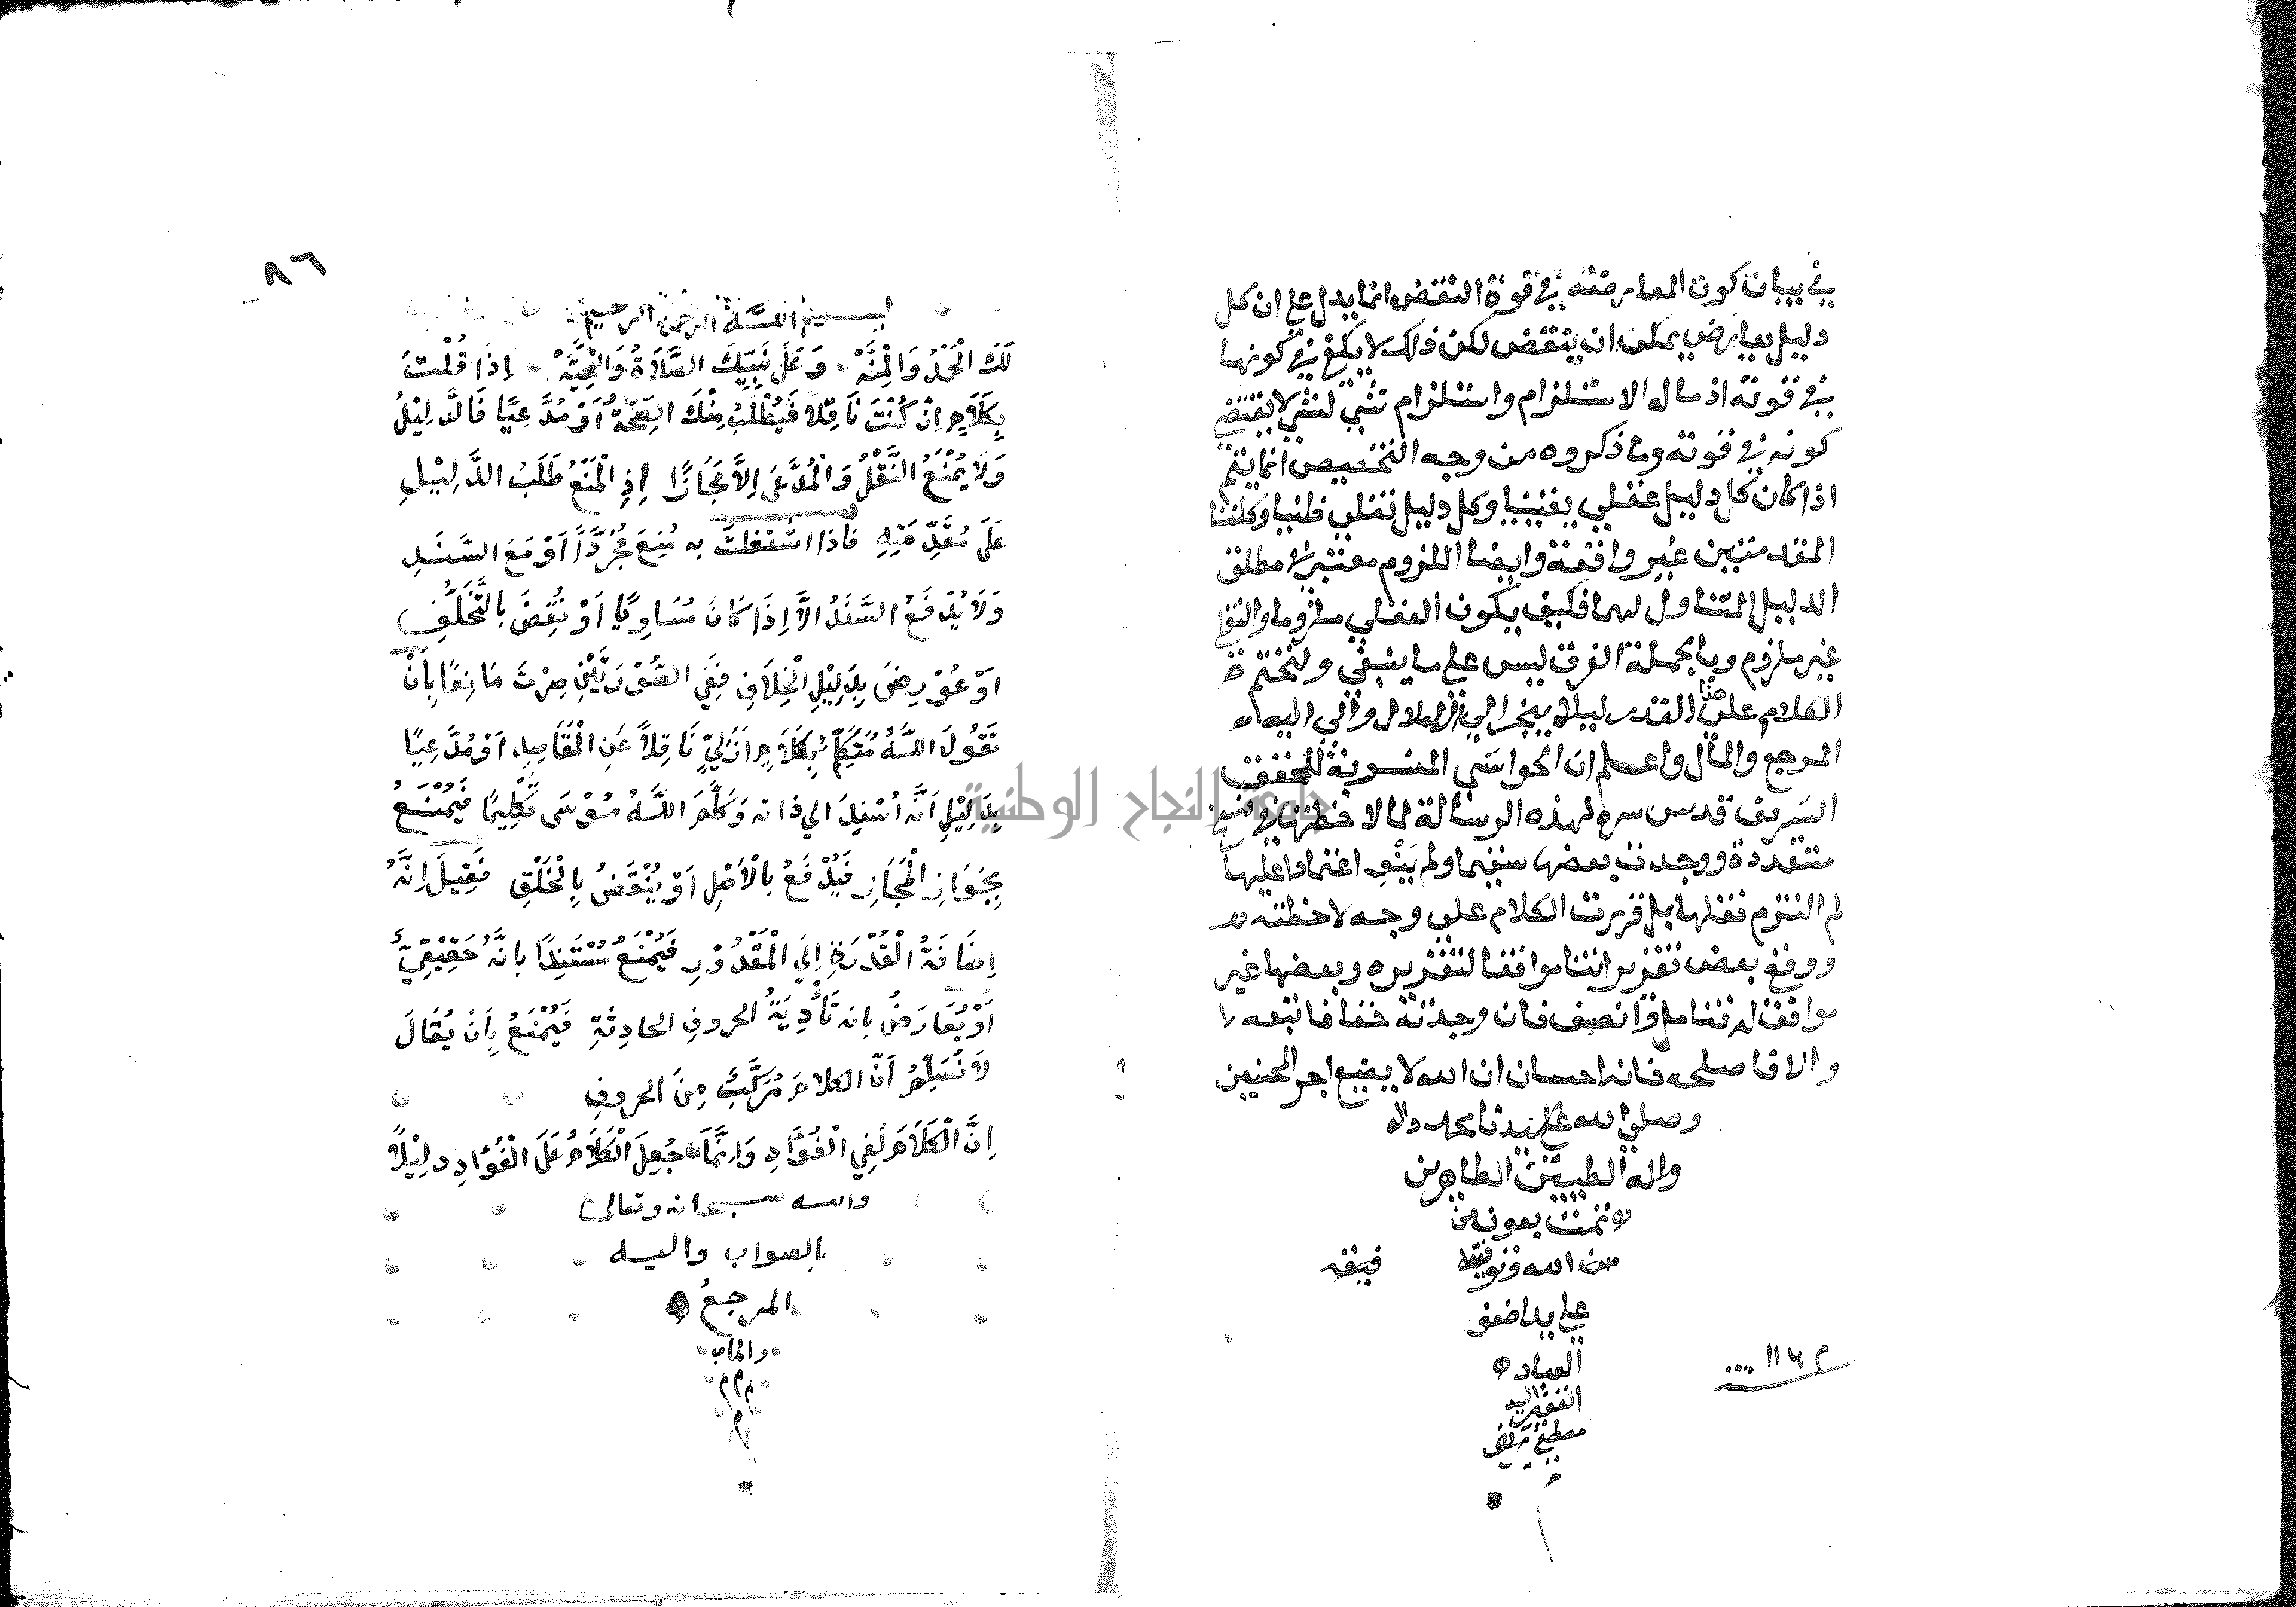 في بيان كون المعارضة في قوة النقض انما يدل على ان كل
دليل يعارض يمكن ان ينتقض لكن ذلك لا يكفي في كونها
في قوته اذ مآله الاستلزام واستلزام شئ لشئ لا يقتضي
كونه في قوته وما ذكروه من وجه التخصيص انما يتم
اذا كان كل دليل عقلي يقينيا وكل دليل نقلي ظنيا وكلتا
المقدمتين غير واقعة وايضا اللزوم معتبر في مطلق
الدليل المتناول لهما فكيف يكون العقلي ملزوما والنقلي
غير ملزوم وبالجملة الفرق ليس على ما ينبغي ولنختم
الكلام على هذا القدر ليلا ينجر الى الملال والى اليه
المرجع والمآل واعلم ان الحواشي المنسوبة للمحقق
الشريف قدس سره لهذه الرسالة لما لاحظتها في نسخ
متعددة ووجدت بعضها سقيما ولم يبق اعتماد عليها
لم التزم نقلها بل قررت الكلام على وجه لاحظته
ووقع بعض تقريراتنا موافقا لتقريره وبعضها غير
موافق له فتامل وانصف فان وجدته حقا فاتبعه
والا فاصلحه فانه احسان ان الله لا يضيع اجر المحسنين
وصلى الله على سيدنا محمد واله
واله الطيبين الطاهرين
تمت بعونه من
من الله وتوفيقه
على يد اضعف
العباد
الفقير السيد
مصطفى
م ١١٧
٨٦
بسم الله الرحمن الرحيم
لَكَ الْحَمْدُ وَالْمِنَّة وَعَلَى نَبِيِّكَ الصَّلَاةُ وَالتَّحِيَّة اِذَا قُلْتَ
بِكَلَامٍ اِنْ كُنْتَ نَاقِلًا فَيُطْلَبُ مِنْكَ الصِّحَّةُ اَوْ مُدَّعِيًا فَالدَّلِيْلُ
وَلَا يُمْنَعُ النَّقْلُ وَالْمُدَّعَى اِلَّا مَجَازًا اِذِ الْمَنْعُ طَلَبُ الدَّلِيْلِ
عَلَى مُقَدِّمَتِهِ فاذا اشْتَغَلْتَ به مُنِعَ مُجَرَّدًا اَوْ مَعَ السَّنَدِ
وَلَا يُدْفَعُ السَّنَدُ الَّا اِذَا كَانَ مُسَاوِيًا اَوْ نُقِضَ بِالتَّخَلُّفِ
اَوْ عُوْرِضَ بِدَلِيْلِ الْخِلَافِ فَفِي الصُّوْرَتَيْنِ صِرْتَ مَانِعًا بِاَنْ
تَقُوْلَ اللّٰهُ مُتَكَلِّمٌ بِكَلَامٍ اَزَلِيٍّ نَاقِلًا عَنِ الْمَقَاصِدِ اَوْ مُدَّعِيًا
بِدَلِيْلِ اَنَّهُ اُسْنِدَ الي ذاته وَكَلَّمَ اللّٰهُ مُوْسَى تَكْلِيمًا فَيُمْنَعُ
بِجَوَازِ الْمَجَازِ فَيُدْفَعُ بِالْاَصْلِ اَوْ يُنْقَضُ بِالْخَلْقِ فَقِيْلَ اِنَّهُ
اِضَافَةُ الْقُدْرَةِ اِلَى الْمَقْدُوْرِ فَيُمْنَعُ مُسْتَنِدًا بِاَنَّهُ حَقِيْقِيٌّ
اَوْ يُعَارَضُ بِانه تَأْدِيَةُ الحروف الحادِثَةِ فَيُمْنَعُ بِاَنْ يُقَالَ
لَا نُسَلِّمُ اَنَّ الكلامَ مُرَكَّبٌ مِنَ الحروفِ
اِنَّ الْكَلَامَ لَفِي الْفُؤَادِ وَاِنَّمَا جُعِلَ الْكَلَامُ عَلَى الْفُؤَادِ دلِيْلًا
والله سبحانه وتعالى
بالصواب واليه
المرجع
والمآب
م م م
م
جامعة النجاح الوطنية